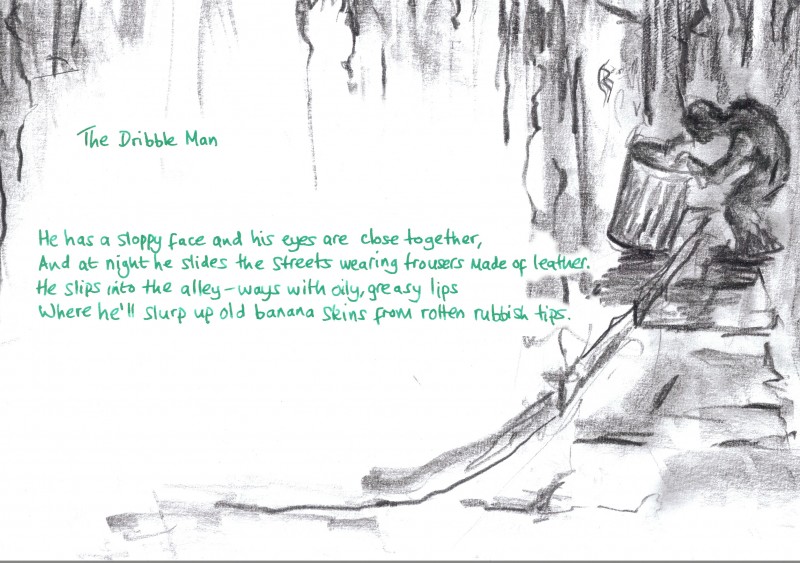 The Dribble Man
He has a sloppy face and his eyes are close together,
And at night he slides the streets wearing trousers made of leather.
He slips into the alley-ways with oily, greasy lips
Where he'll slurp up old banana skins from rotten rubbish tips.